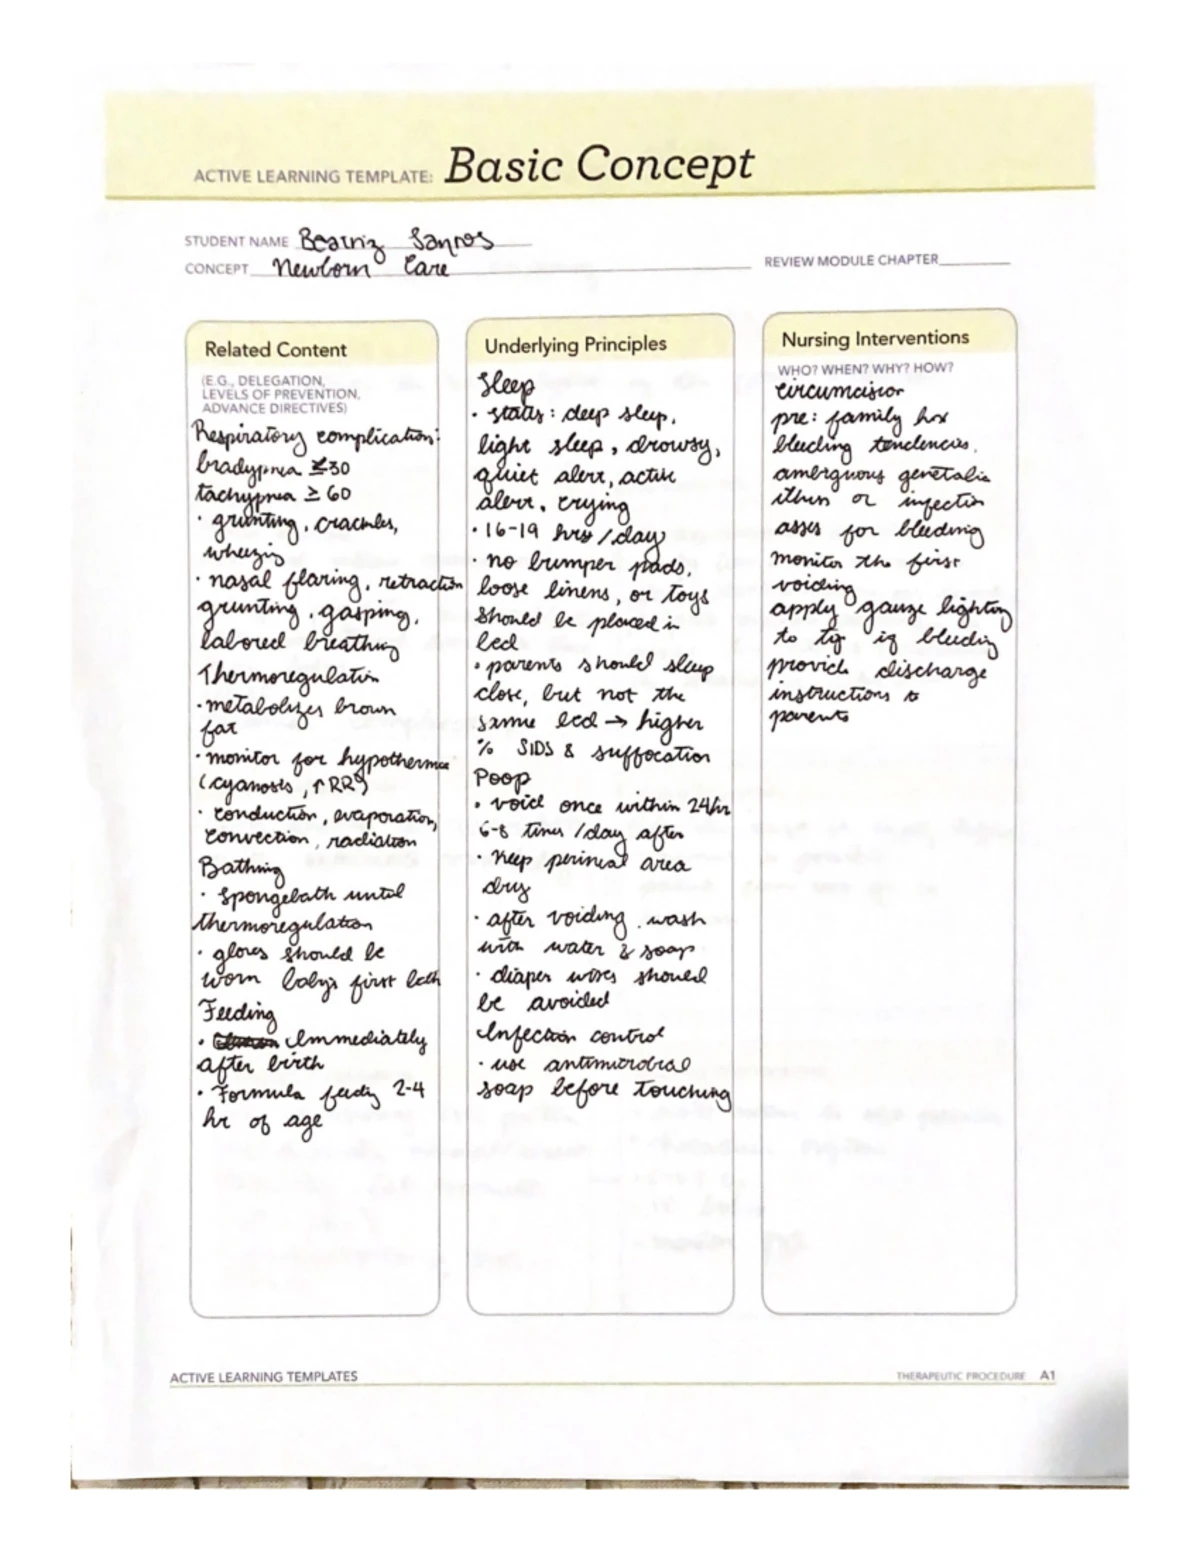 ACTIVE LEARNING TEMPLATE: Basic Concept
STUDENT NAME Beatriz Santos
CONCEPT Newborn Care
REVIEW MODULE CHAPTER
Related Content
(E.G., DELEGATION,
LEVELS OF PREVENTION,
ADVANCE DIRECTIVES)
Respiratory complication:
bradypnea ≤30
tachypnea ≥ 60
· grunting, crackles,
wheezing
· nasal flaring, retraction
grunting, gasping,
labored breathing
Thermoregulation
· metabolizes brown
fat
· monitor for hypothermia
(cyanosis, ↑RR)
· conduction, evaporation,
convection, radiation
Bathing
· spongebath until
thermoregulation
· gloves should be
worn baby's first bath
Feeding
· Immediately
after birth
· Formula feeding 2-4
hr of age
Underlying Principles
Sleep
· states: deep sleep,
light sleep, drowsy,
quiet alert, active
alert, crying
· 16-19 hrs/day
· no bumper pads,
loose linens, or toys
should be placed in
bed
· parents should sleep
close, but not the
same bed → higher
% SIDS & suffocation
Poop
· void once within 24hr
6-8 times/day after
· Keep perineal area
dry
· after voiding, wash
with water & soap
· diaper wipes should
be avoided
Infection control
· use antimicrobial
soap before touching
Nursing Interventions
WHO? WHEN? WHY? HOW?
circumcision
pre: family hx
bleeding tendencies,
ambiguous genetalia
or infection
asses for bleeding
monitor the first
voiding
apply gauze lightly
to tip if bleeding
provide discharge
instructions to
parents
ACTIVE LEARNING TEMPLATES
THERAPEUTIC PROCEDURE A1